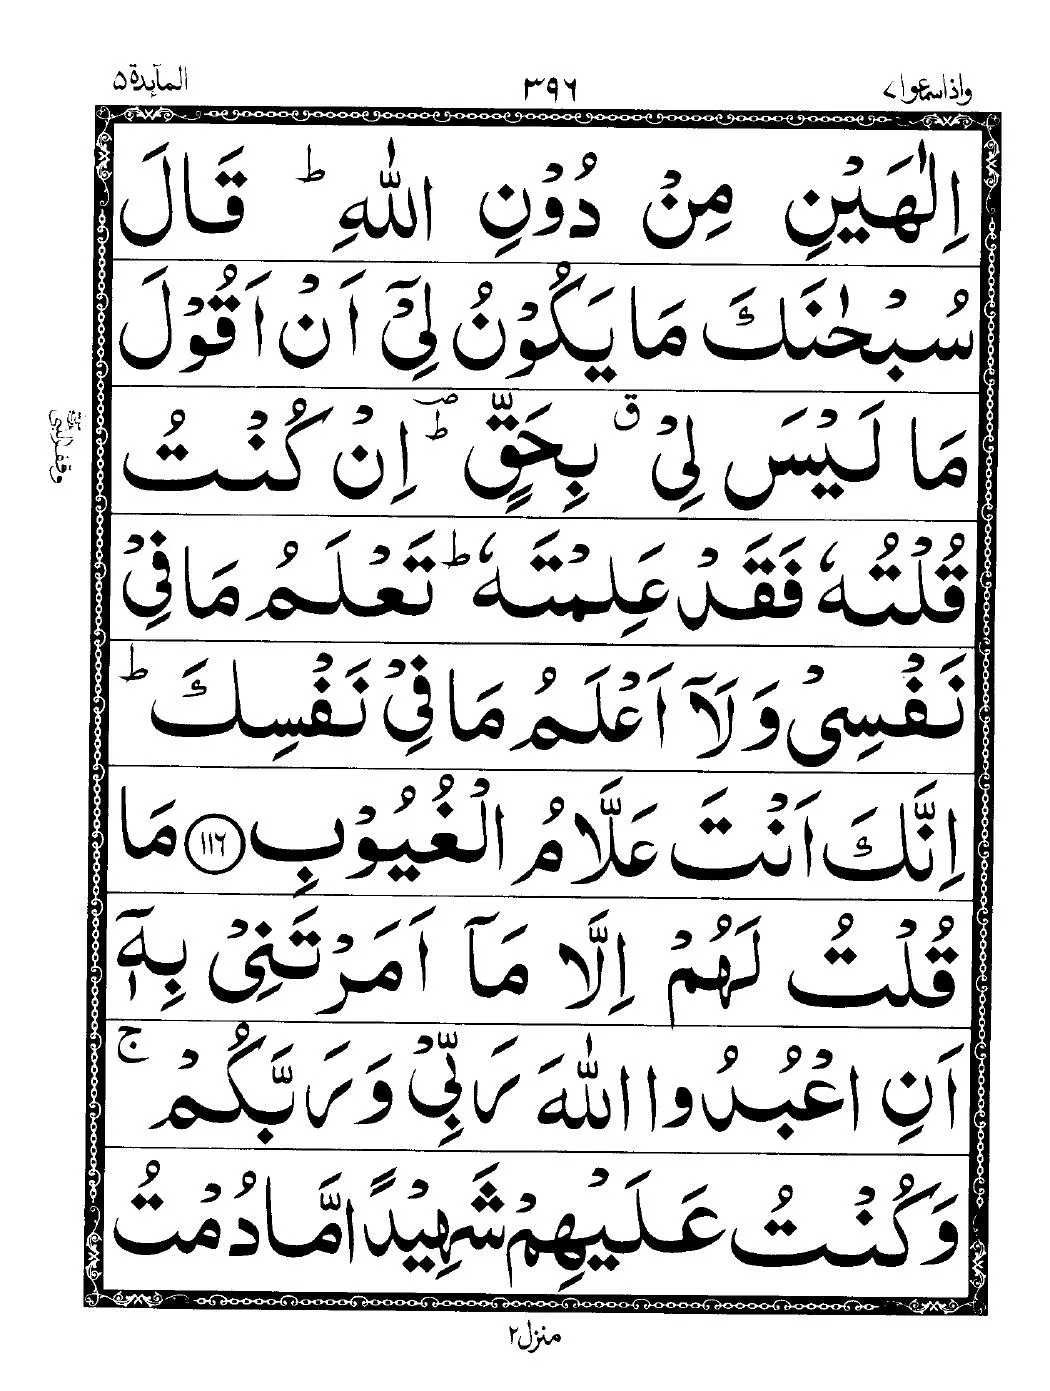 واذاسمعوا ٧ ٣٩٦ المآىِٕدة ٥
اِلٰهَيْنِ مِنْ دُوْنِ اللّٰهِ ؕ قَالَ
سُبْحٰنَكَ مَا يَكُوْنُ لِيْۤ اَنْ اَقُوْلَ
مَا لَيْسَ لِيْ ۗ بِحَقٍّ ؕؔ اِنْ كُنْتُ
قُلْتُهٗ فَقَدْ عَلِمْتَهٗ ؕ تَعْلَمُ مَا فِيْ
نَفْسِيْ وَلَاۤ اَعْلَمُ مَا فِيْ نَفْسِكَ ؕ
اِنَّكَ اَنْتَ عَلَّامُ الْغُيُوْبِ ﴿١١٦﴾ مَا
قُلْتُ لَهُمْ اِلَّا مَاۤ اَمَرْتَنِيْ بِهٖۤ
اَنِ اعْبُدُوا اللّٰهَ رَبِّيْ وَرَبَّكُمْ ۚ
وَكُنْتُ عَلَيْهِمْ شَهِيْدًا مَّا دُمْتُ
وقف النبي
منزل ٢